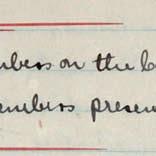 mbers on the b
embers presen